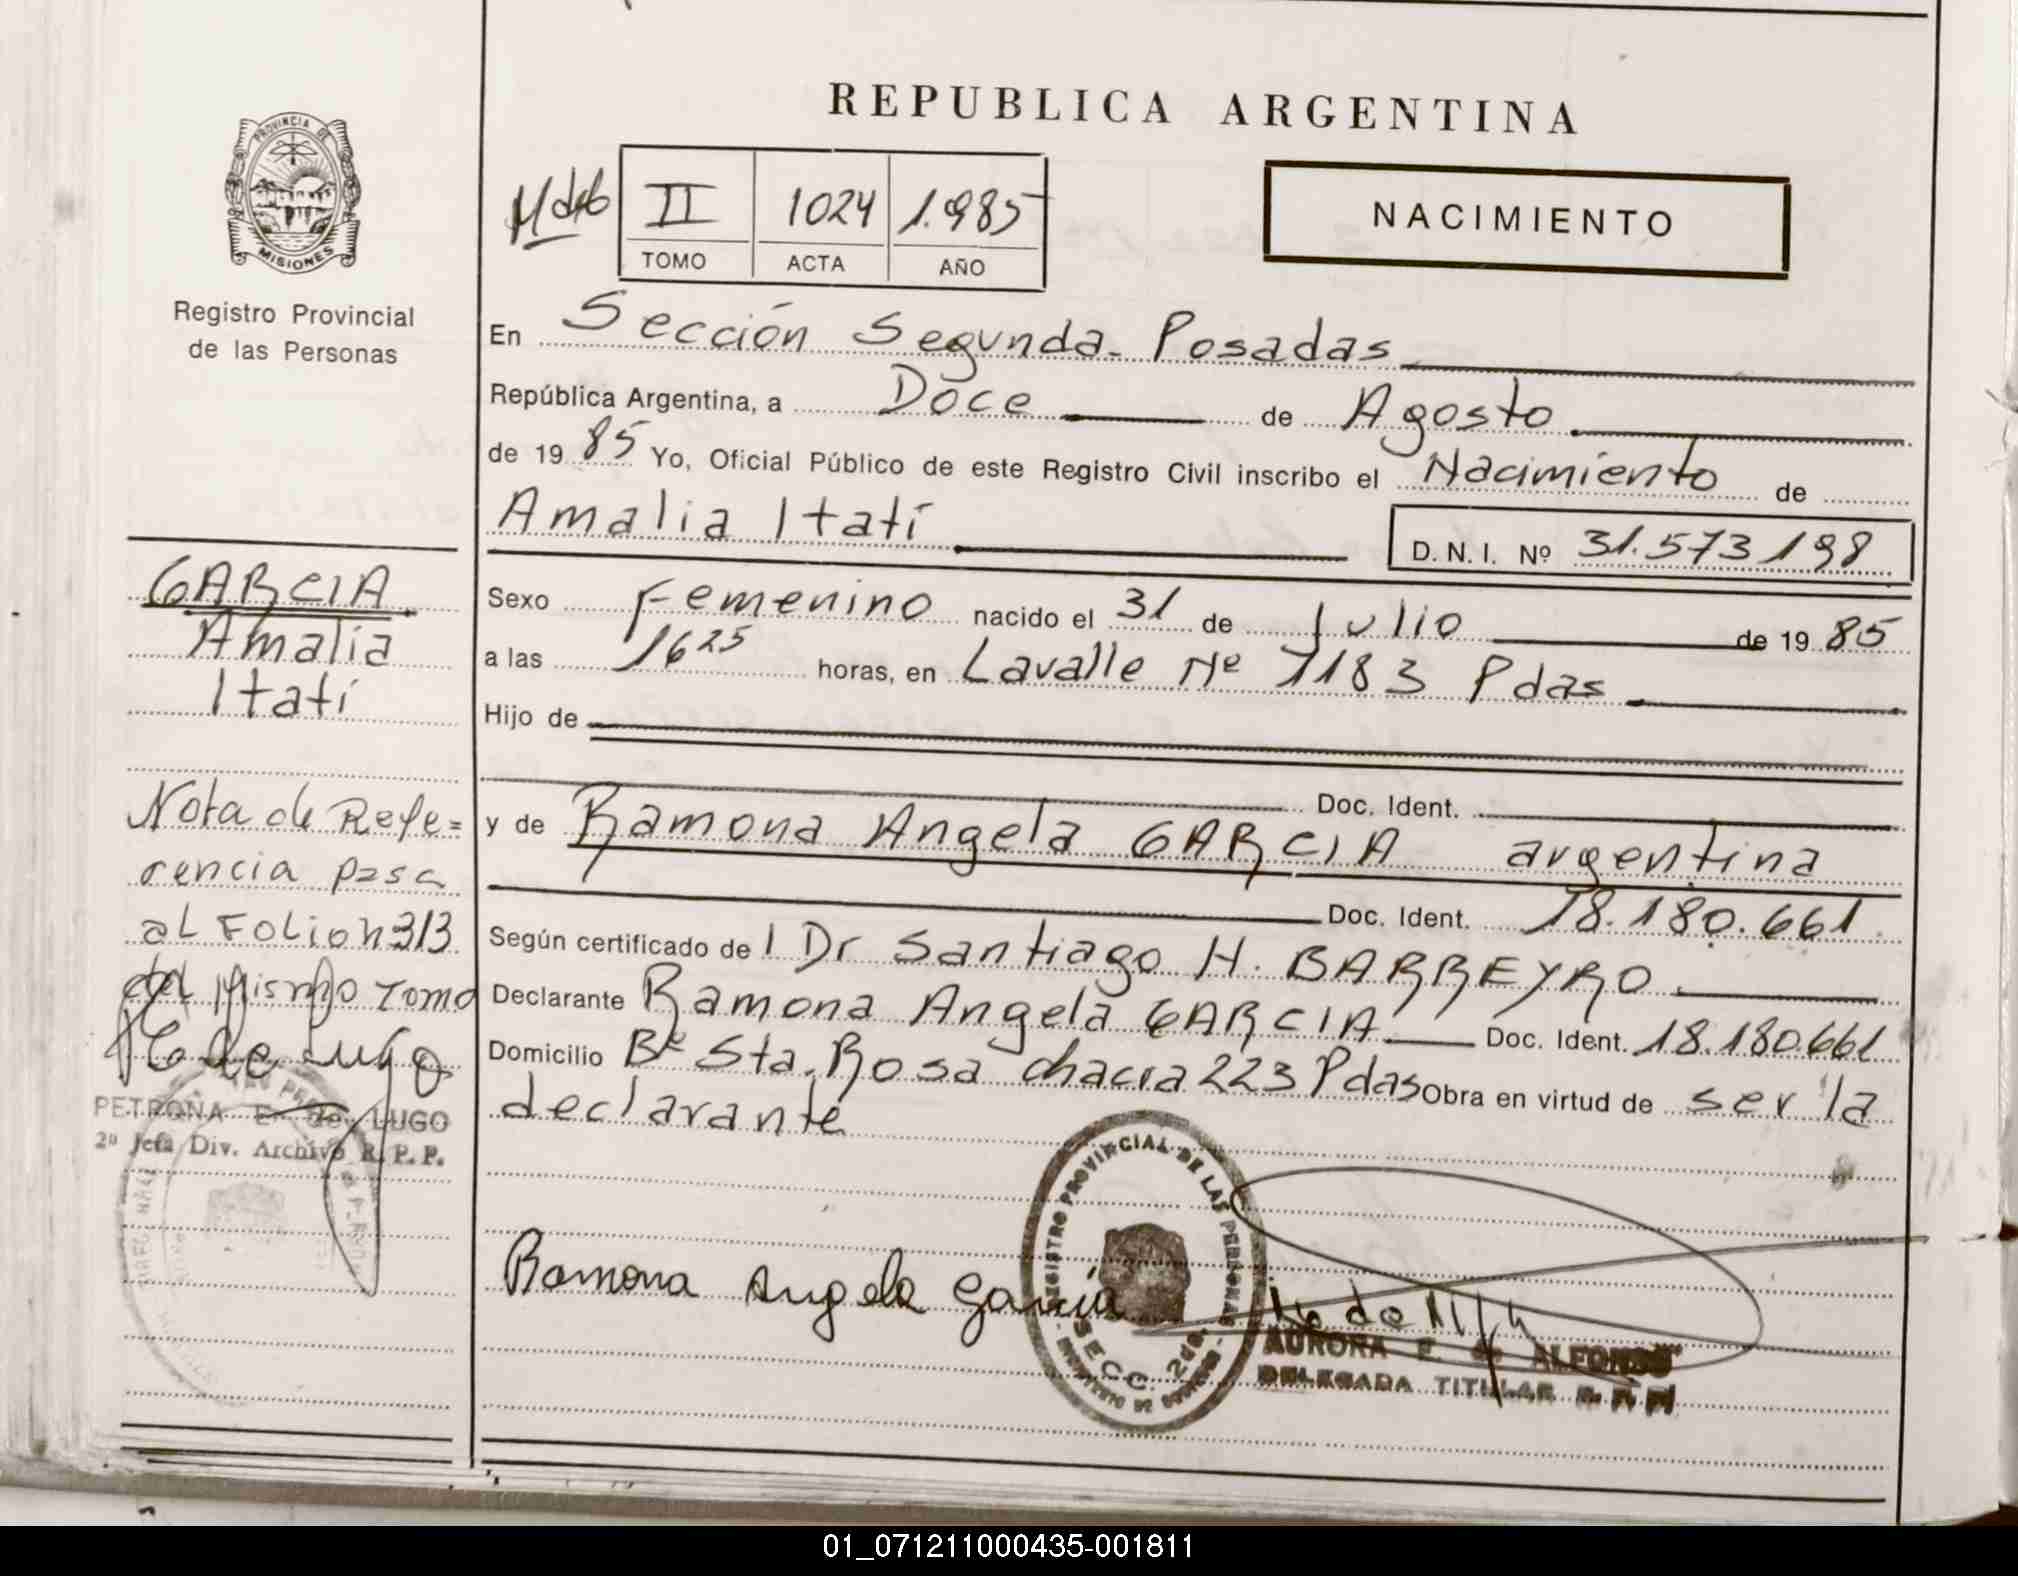 REPUBLICA ARGENTINA
PROVINCIA DE
MISIONES
Registro Provincial
de las Personas
II 1024 1.985
TOMO ACTA AÑO
NACIMIENTO
En Sección Segunda - Posadas
República Argentina, a Doce de Agosto
de 19 85 Yo, Oficial Público de este Registro Civil inscribo el Nacimiento de
Amalia Itatí
D. N. I. Nº 31.573198
Sexo Femenino nacido el 31 de Julio de 19 85
a las 16 25 horas, en Lavalle Nº 1183 Pdas
Hijo de
Doc. Ident.
y de Ramona Angela GARCIA argentina
Doc. Ident. 18.180.661
Según certificado de l Dr Santiago H. BARREYRO
Declarante Ramona Angela GARCIA Doc. Ident. 18.180.661
Domicilio Bº Sta. Rosa chacra 223 Pdas Obra en virtud de ser la
declarante
GARCIA
Amalia
Itatí
Nota de Refe=
rencia pasa
al Folio n 313
del Mismo Tomo
PETRONA E. de LUGO
2º Jefa Div. Archivo R. P. P.
Ramona Angela García
REGISTRO PROVINCIAL DE LAS PERSONAS
SECC. 2da.
AURORA E. de ALFONSO
DELEGADA TITULAR R. P. P.
01_071211000435-001811